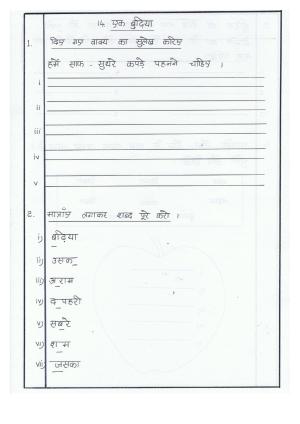 14. एक बुढ़िया
1. दिए गए वाक्य का सुलेख करिए
हमें साफ - सुथरे कपड़े पहनने चाहिए ।
i
ii
iii
iv
v
2. मात्राएँ लगाकर शब्द पूरे करो ।
i) बुढ़िया
ii) उसक_
iii) अ_राम
iv) द_पहरी
v) सब_रे
vi) श_म
vii) _जसका